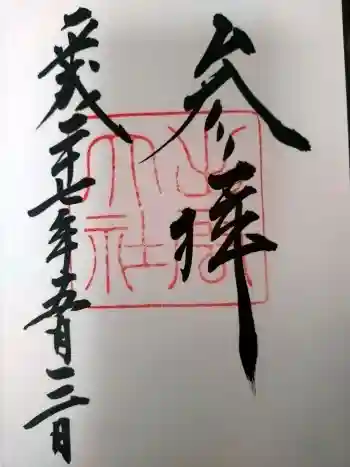 参拝
平成二十七年五月三日
出雲
大社